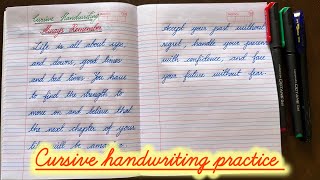 Cursive Handwriting
Always Remember
Life is all about ups
and downs, good times
and bad times. You have
to find the strength to
move on and believe that
the next chapter of your
will be
Accept your past without
regret, handle your present
with confidence, and face
your future without fear.
Cursive handwriting practice